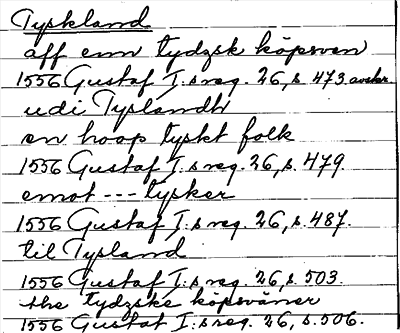 Tyskland
aff enn tydzsk köpsven
1556 Gustaf I:s reg. 26, s. 473
udi Tyslandh
en hoop tyskt folk
1556 Gustaf I:s reg. 26, s. 479.
emot --- tysker
1556 Gustaf I:s reg. 26, s. 487.
til Tysland
1556 Gustaf I:s reg. 26, s. 503.
the tydzske köpsväner
1556 Gustaf I:s reg. 26, s. 506.